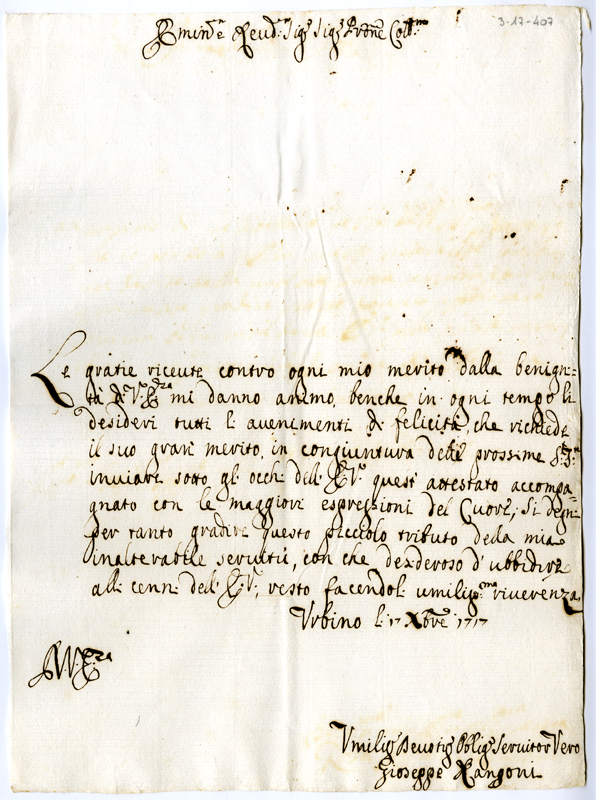 3-17-407
Emin.e Reud.o Sig.r Sig.r Prone Coll.mo
Le gratie riceute contro ogni mio merito dalla benign=
tà di V. Em.za mi danno animo, benche in ogni tempo li
desideri tutti li auenimenti di felicità, che richiede
il suo gran merito, in congiuntura delle prossime S.te F.te
inuiare sotto gli occhi dell' E.V. questi attestato accompa=
gnato con le maggiori espressioni del Cuore; Si degni
per tanto gradire questo piccolo tributo della mia
inalterabile seruitù, con che desideroso d'ubbidire
alli cenni dell' E.V., resto facendoli umilis.ma riuerenza
Vrbino li 17 Xbre 1717
Vmilis.o Deuotis.o Oblig.o Seruitor Vero
Gioseppe Rangoni